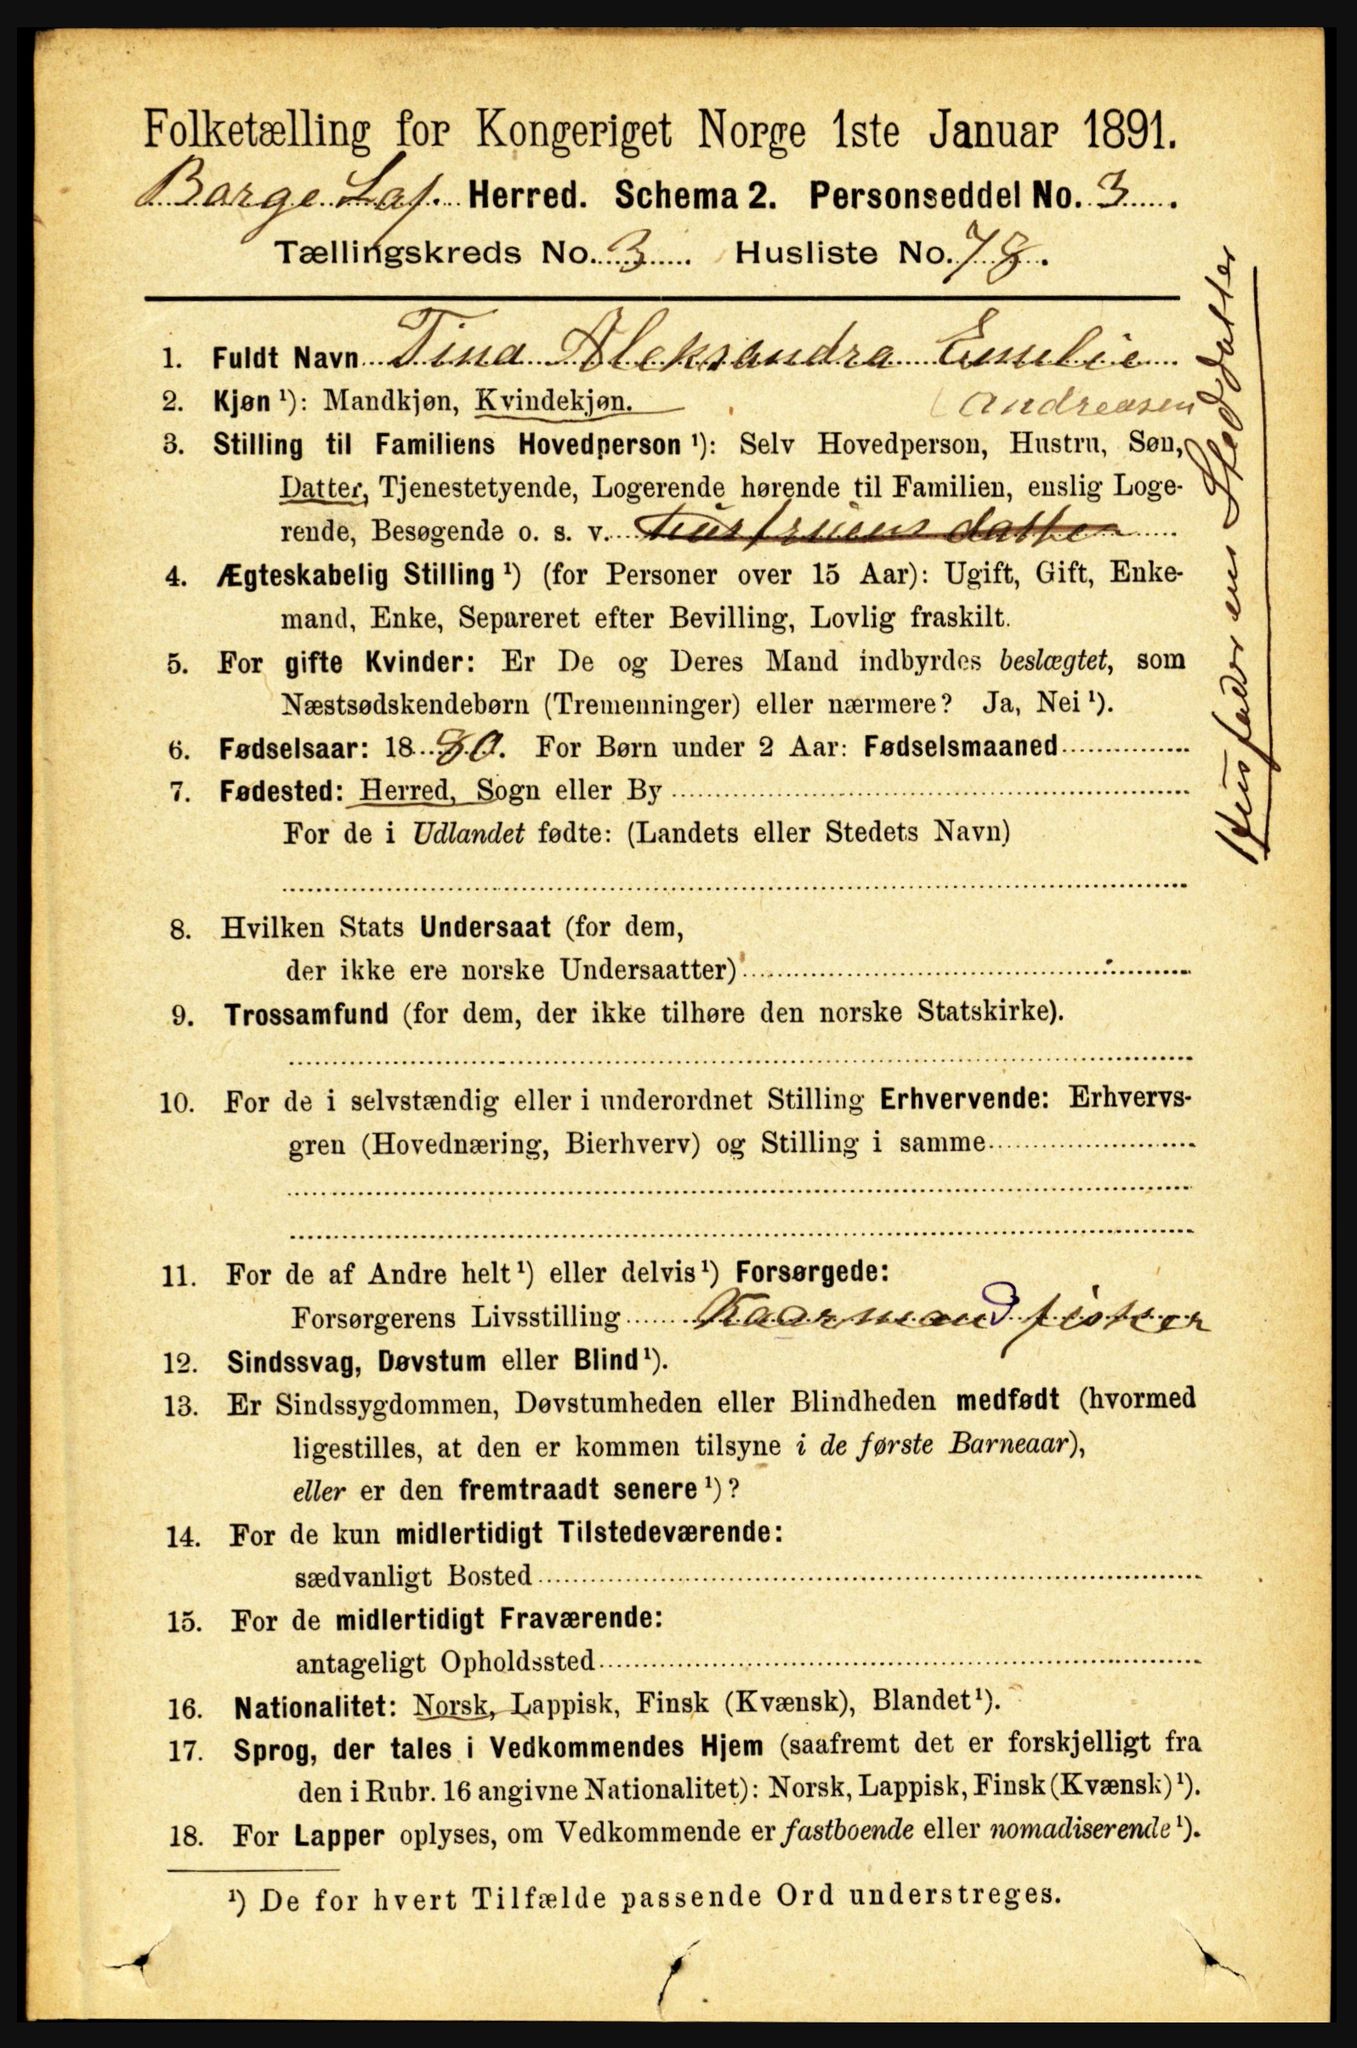 Folketælling for Kongeriget Norge 1ste Januar 1891.
Borge Lof. Herred. Schema 2. Personseddel No. 3.
Tællingskreds No. 3. Husliste No. 78.
1. Fuldt Navn Tina Aleksandra Emelie
(Andreasen
2. Kjøn¹): Mandkjøn, Kvindekjøn.
3. Stilling til Familiens Hovedperson¹): Selv Hovedperson, Hustru, Søn,
Datter, Tjenestetyende, Logerende hørende til Familien, enslig Loge-
rende, Besøgende o. s. v. Husfruens datter
Husfaderens Steddatter
4. Ægteskabelig Stilling¹) (for Personer over 15 Aar): Ugift, Gift, Enke-
mand, Enke, Separeret efter Bevilling, Lovlig fraskilt.
5. For gifte Kvinder: Er De og Deres Mand indbyrdes beslægtet, som
Næstsødskendebørn (Tremenninger) eller nærmere? Ja, Nei¹).
6. Fødselsaar: 1880. For Børn under 2 Aar: Fødselsmaaned
7. Fødested: Herred, Sogn eller By
For de i Udlandet fødte: (Landets eller Stedets Navn)
8. Hvilken Stats Undersaat (for dem,
der ikke ere norske Undersaatter)
9. Trossamfund (for dem, der ikke tilhøre den norske Statskirke).
10. For de i selvstændig eller i underordnet Stilling Erhvervende: Erhvervs-
gren (Hovednæring, Bierhverv) og Stilling i samme
11. For de af Andre helt¹) eller delvis¹) Forsørgede:
Forsørgerens Livsstilling Kaarmand fisker
12. Sindssvag, Døvstum eller Blind¹).
13. Er Sindssygdommen, Døvstumheden eller Blindheden medfødt (hvormed
ligestilles, at den er kommen tilsyne i de første Barneaar),
eller er den fremtraadt senere¹)?
14. For de kun midlertidigt Tilstedeværende:
sædvanligt Bosted
15. For de midlertidigt Fraværende:
antageligt Opholdssted
16. Nationalitet: Norsk, Lappisk, Finsk (Kvænsk), Blandet¹).
17. Sprog, der tales i Vedkommendes Hjem (saafremt det er forskjelligt fra
den i Rubr. 16 angivne Nationalitet): Norsk, Lappisk, Finsk (Kvænsk)¹).
18. For Lapper oplyses, om Vedkommende er fastboende eller nomadiserende¹).
¹) De for hvert Tilfælde passende Ord understreges.